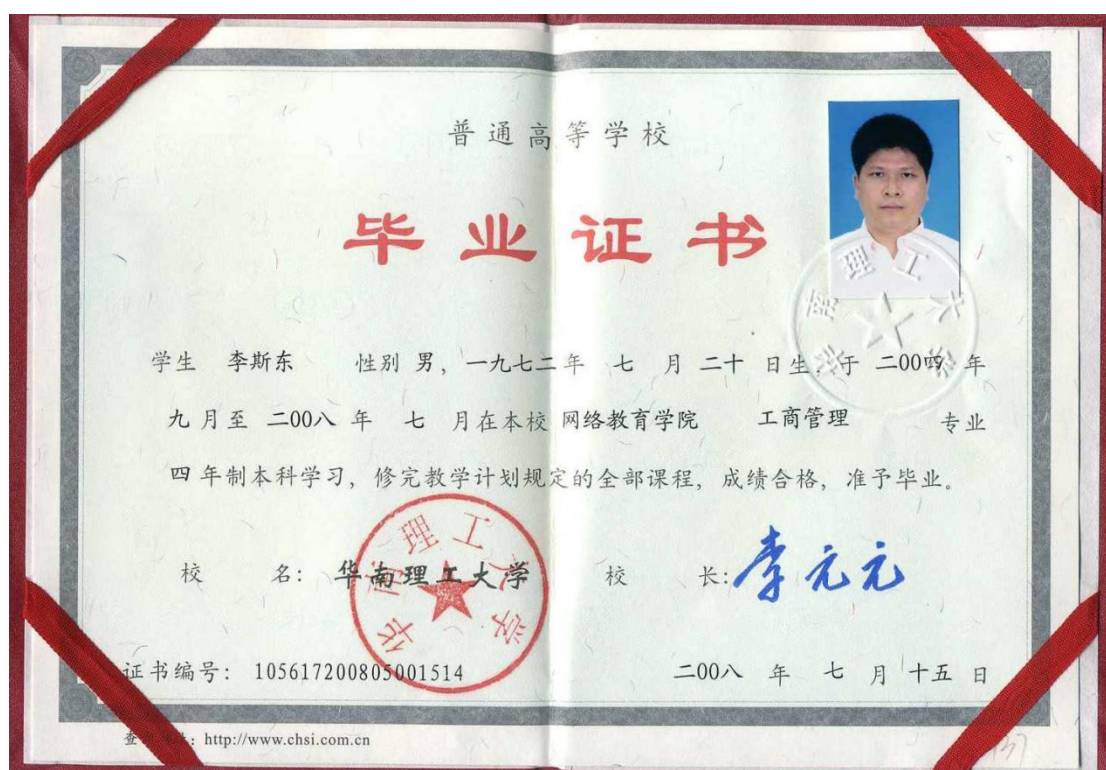 普通高等学校
毕业证书
学生 李斯东 性别 男，一九七二年 七 月 二十 日生，于 二00四 年
九 月至 二00八 年 七 月在本校 网络教育学院 工商管理 专业
四 年制本科学习，修完教学计划规定的全部课程，成绩合格，准予毕业。
校 名：华南理工大学 校 长：李元元
华南理工大学
华南理工大学
证书编号： 105617200805001514 二00八 年 七 月 十五 日
http://www.chsi.com.cn